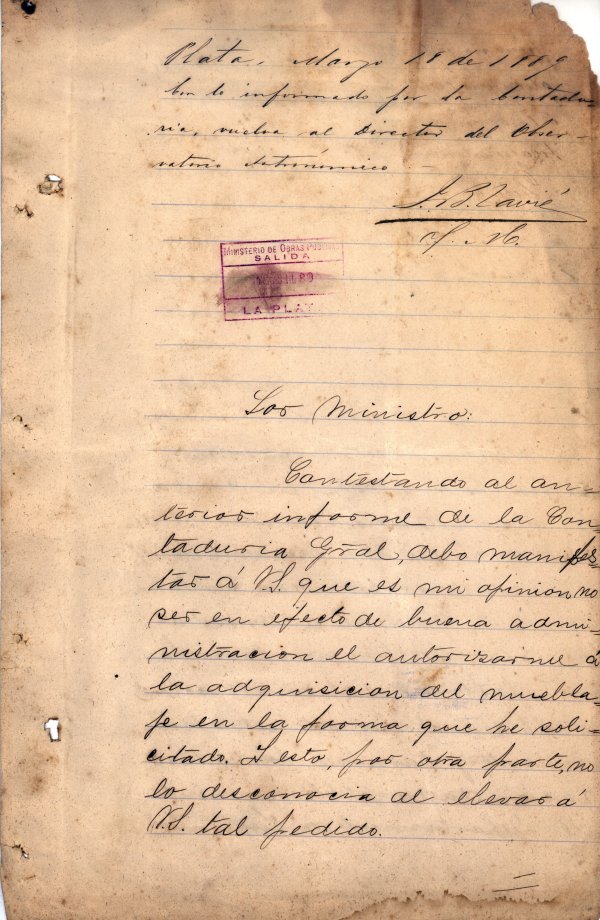 Plata, Marzo 18 de 1889
Con lo informado por la Contadu-
ria, vuelva al Director del Obser-
vatorio Astronómico
J. B. Zavié
MINISTERIO DE OBRAS PUBLI
SALIDA
89
LA PLAT
Sor Ministro:
Contestando al an-
terior informe de la Con-
taduria Gral, debo manifes-
tar á V.S. que es mi opinion no
ser en efecto de buena admi-
nistracion el autorizarme á
la adquisicion del muebla-
je en la forma que he soli-
citado. I esto, por otra parte, no
lo desconocia al elevar á
V.S. tal pedido.